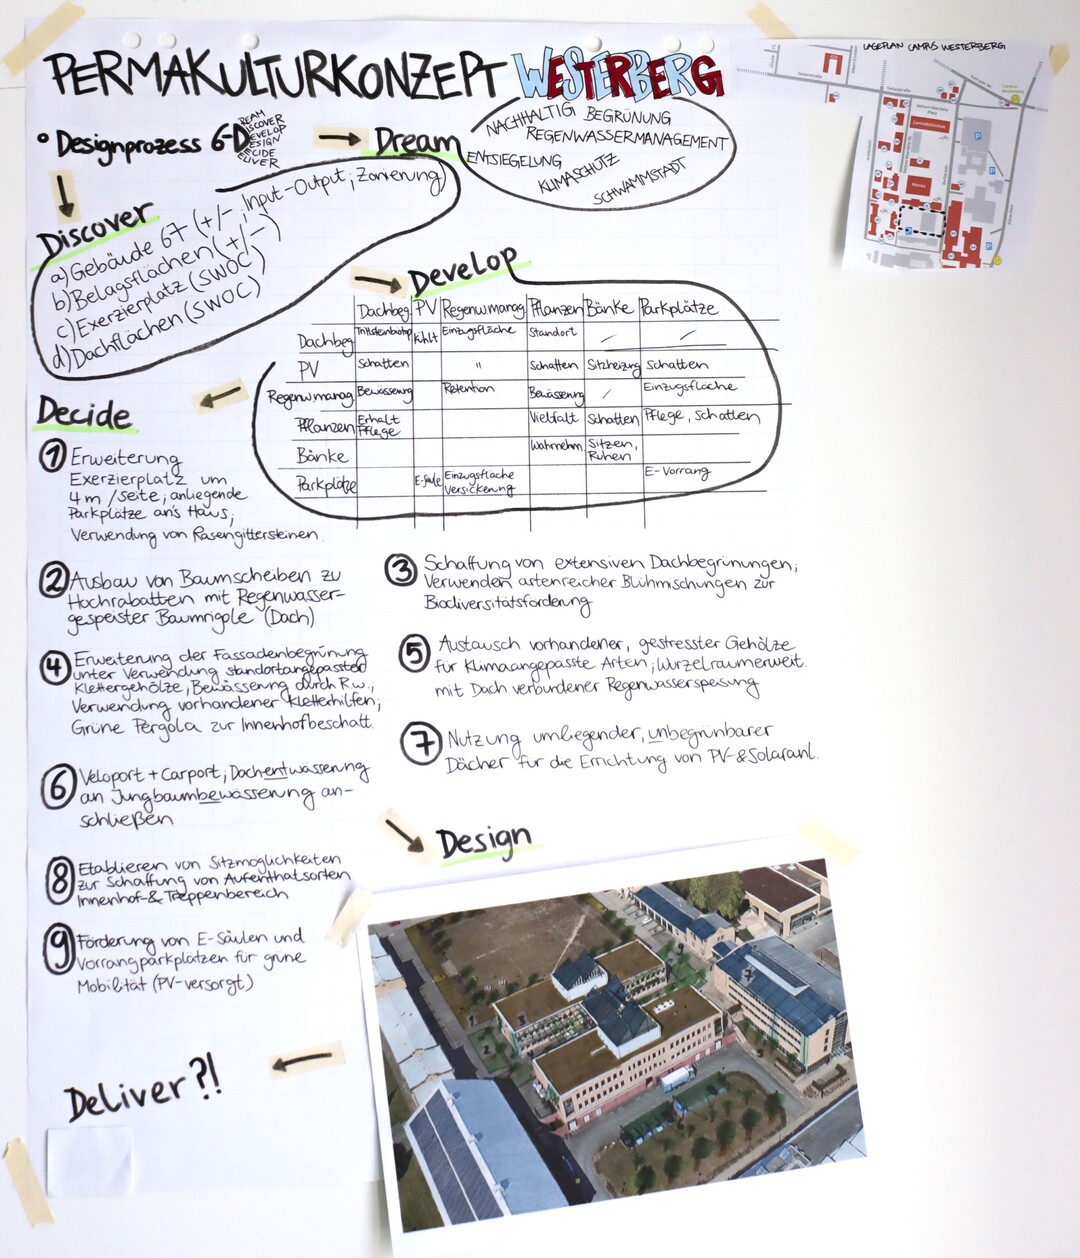 PERMAKULTURKONZEPT WESTERBERG
LAGEPLAN CAMPUS WESTERBERG
• Designprozess 6-D
DREAM
DISCOVER
DEVELOP
DESIGN
DECIDE
DELIVER
Dream
NACHHALTIG BEGRÜNUNG
REGENWASSERMANAGEMENT
ENTSIEGELUNG
KLIMASCHUTZ
SCHWAMMSTADT
Discover
a) Gebäude 67 (+/-, Input-Output, Zonierung)
b) Belagsflächen (+/-)
c) Exerzierplatz (SWOC)
d) Dachflächen (SWOC)
Develop
Dachbeg. PV Regenwmanag. Pflanzen Bänke Parkplätze
Dachbeg. Trittsteinbiotop Kühlt Einzugsfläche Standort / /
PV Schatten " Schatten Sitzheizung Schatten
Regenwmanag. Bewässerung Retention Bewässerung / Einzugsfläche
Pflanzen Erhalt Pflege Vielfalt Schatten Pflege, Schatten
Bänke Wahrnehm. Sitzen, Ruhen
Parkplätze E-Säule Einzugsfläche Versickerung E-Vorrang
Decide
1 Erweiterung
Exerzierplatz um
4 m/Seite; anliegende
Parkplätze an's Haus;
Verwendung von Rasengittersteinen.
2 Ausbau von Baumscheiben zu
Hochrabatten mit Regenwasser-
gespeister Baumrigole (Dach)
3 Schaffung von extensiven Dachbegrünungen;
Verwenden artenreicher Blühmischungen zur
Biodiversitätsförderung
4 Erweiterung der Fassadenbegrünung
unter Verwendung standortangepasster
Klettergehölze; Bewässerung durch R.w.;
Verwendung vorhandener Kletterhilfen;
Grüne Pergola zur Innenhofbeschatt.
5 Austausch vorhandener, gestresster Gehölze
für Klimaangepasste Arten; Wurzelraumerweit.
mit Dach verbundener Regenwasserspeisung
6 Veloport + Carport; Dachentwässerung
an Jungbaumbewässerung an-
schließen
7 Nutzung umliegender, unbegrünbarer
Dächer für die Errichtung von PV-& Solaranl.
8 Etablieren von Sitzmöglichkeiten
zur Schaffung von Aufenthaltsorten
Innenhof-& Treppenbereich
9 Förderung von E-Säulen und
Vorrangparkplätzen für grüne
Mobilität (PV-versorgt)
Design
Deliver?!